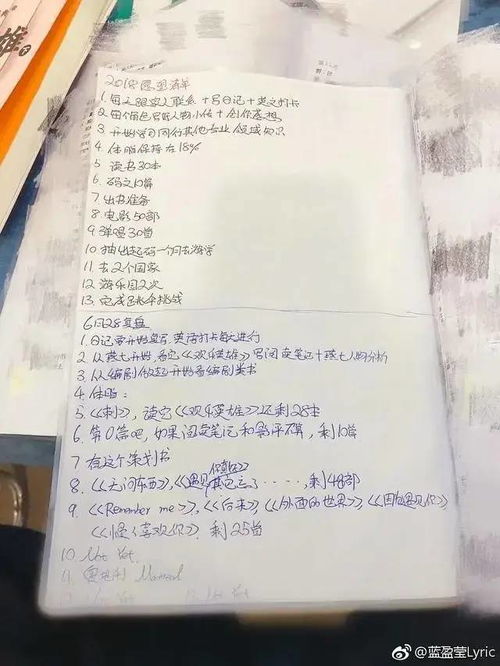 2018愿望清单
1. 每天跟家人联系+写日记+英文打卡
2. 每个角色写人物小传+创作感想
3. 开始学习同行其他专业领域知识
4. 体脂保持在18%
5 读书30本
6. 码文10篇
7. 出书准备
8. 电影50部
9. 弹唱30首
10 抽出起码一个月去游学
11. 去2个国家
12. 游乐园2次
13. 完成挑战
6月28复盘
1. 日记开始写,英语打卡每天进行
2. 从燕七开始,看完《欢乐英雄》写阅读笔记+燕七人物分析
3. 从编剧做起开始看编剧类书
4. 体脂:
5. 《刺》,读完《欢乐英雄》还剩28本
6. 第0篇吧,如果阅读笔记和影评不算,剩10篇
7 有这个策划书
8. 《无问东西》,《遇见你真好》其他忘了·····,剩48部
9. 《Remember me》,《后来》,《外面的世界》,《因为遇见你》
《怪》喜欢你》. 剩25首
10. Not Yet.
11.
12 Not Yet
@蓝盈莹Lyric